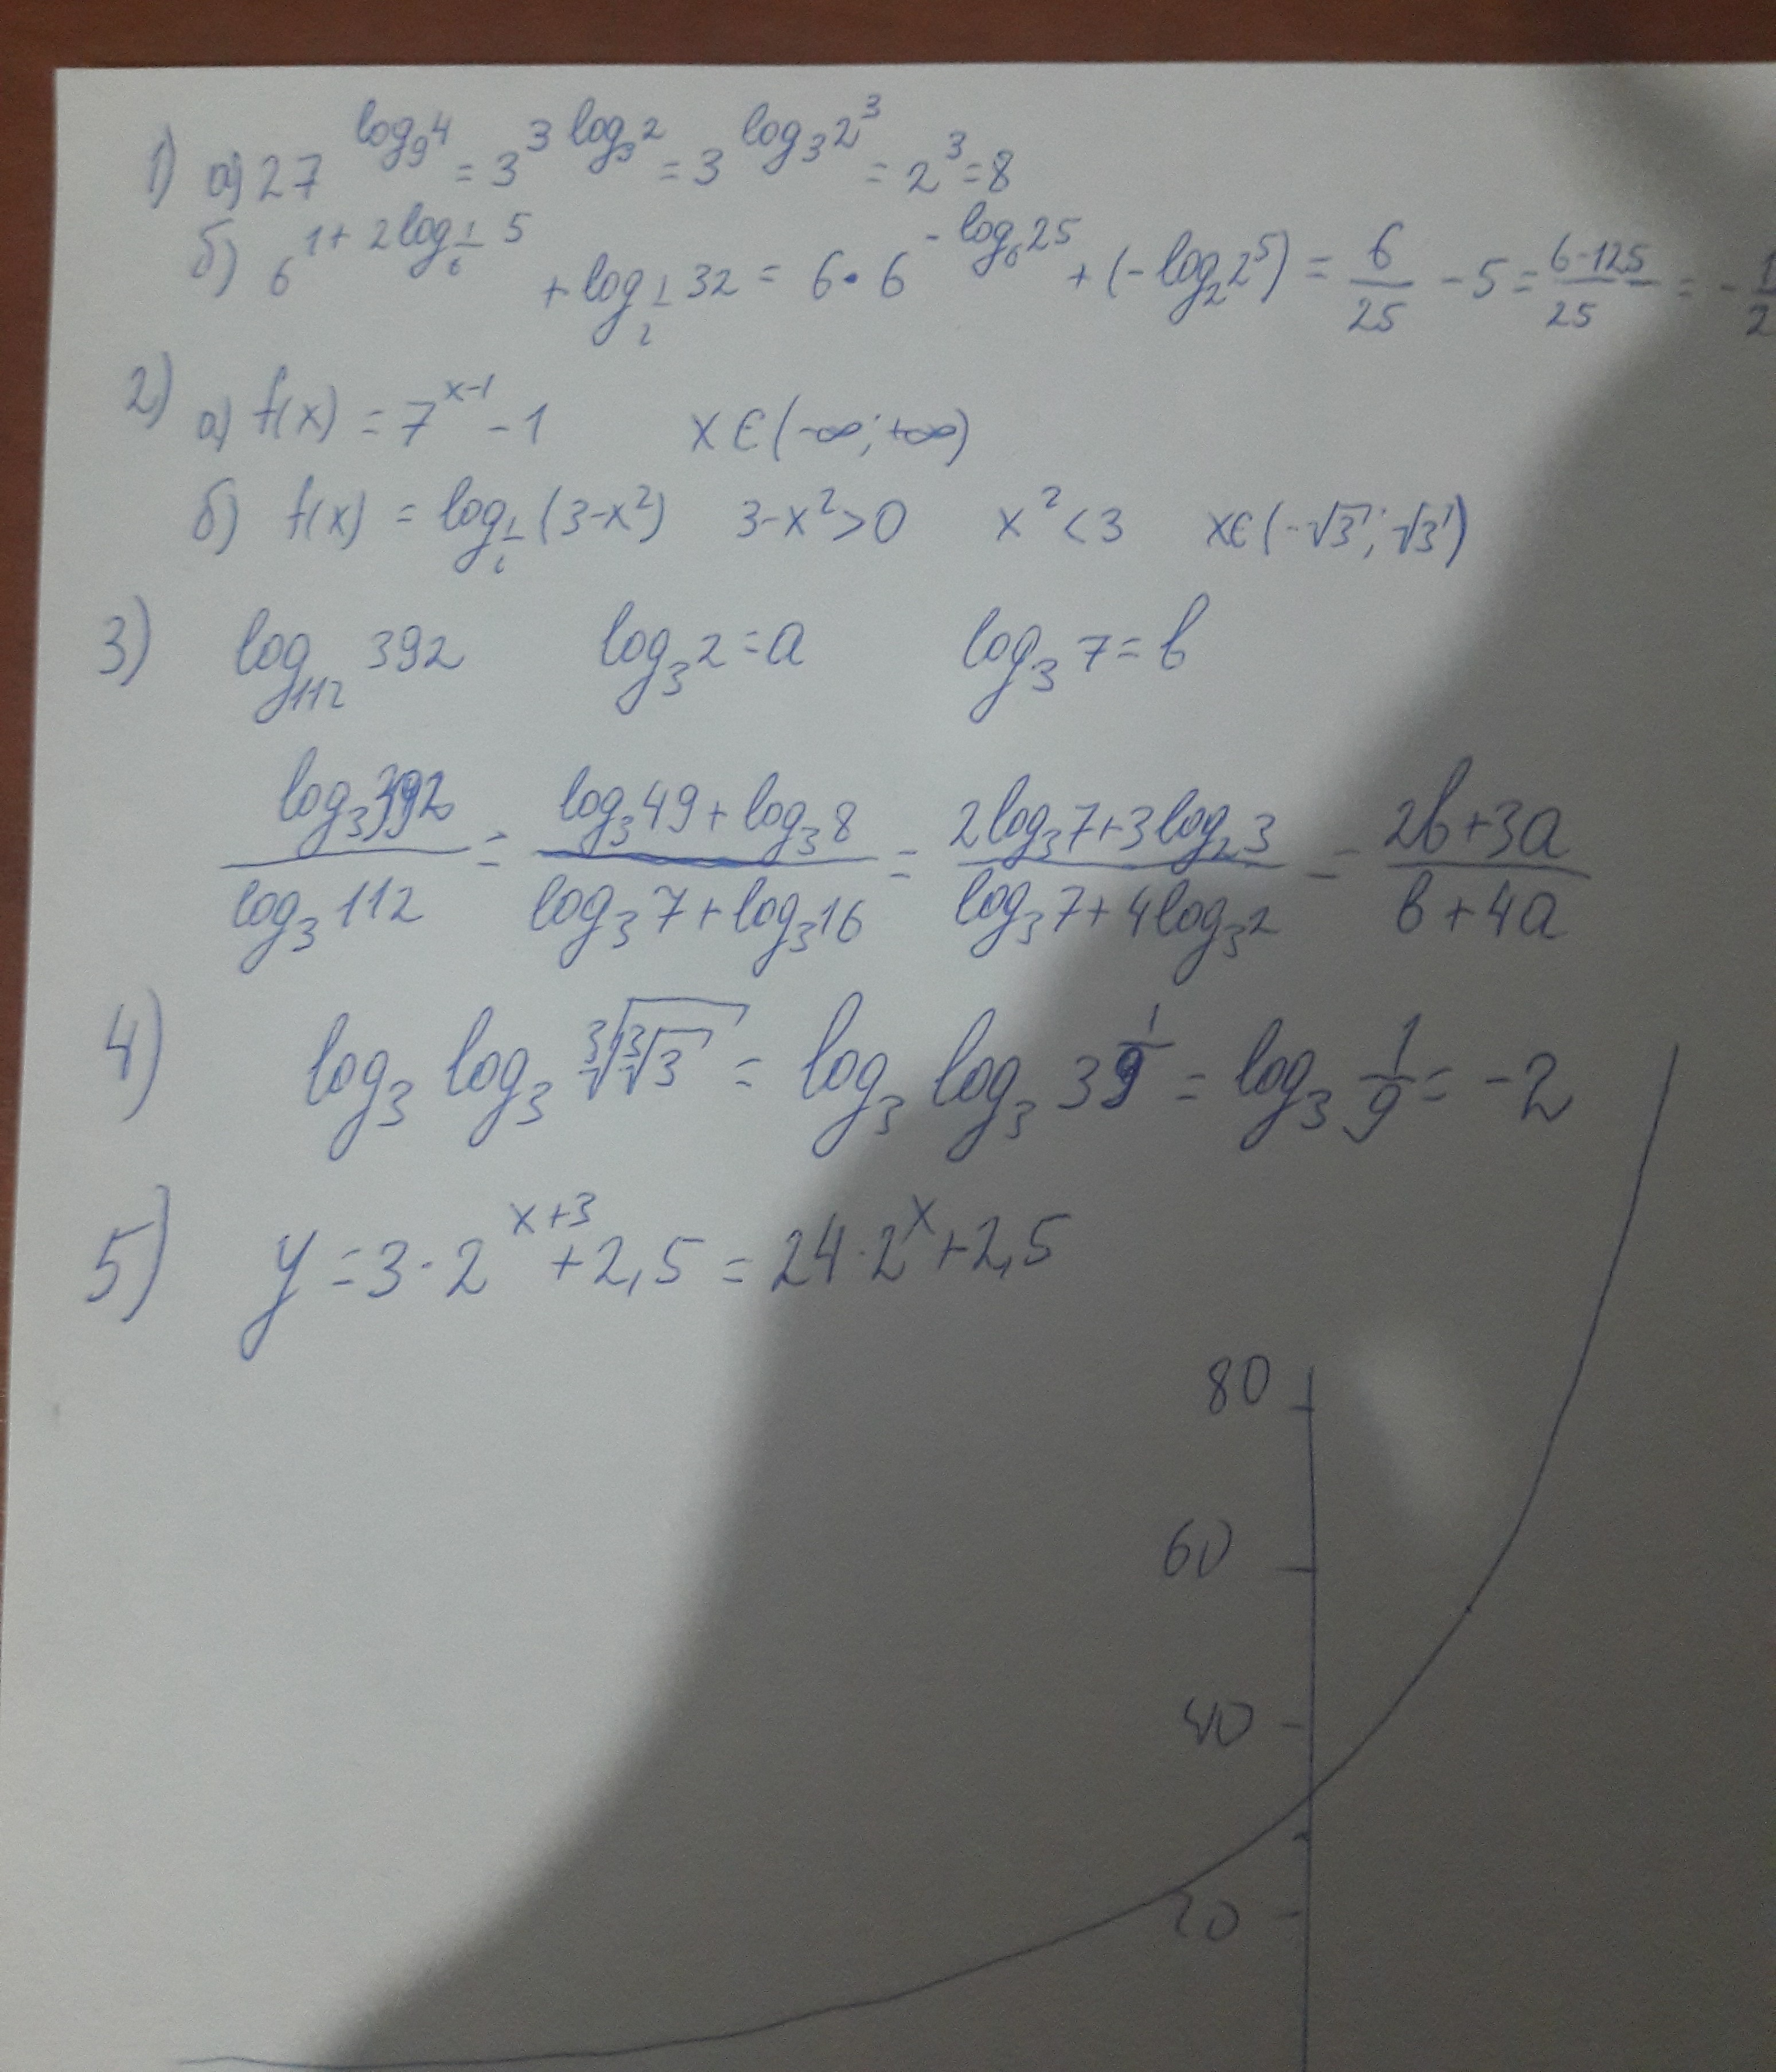 1) а) 27^(log₉4) = 3^(3 log₃2) = 3^(log₃2³) = 2³ = 8
б) 6^(1+2log_(1/6) 5) + log_(1/2) 32 = 6·6^(-log₆25) + (-log₂2⁵) = 6/25 - 5 = (6-125)/25 = -
2) а) f(x) = 7^(x-1) - 1 x∈(-∞; +∞)
б) f(x) = log_(1/6) (3-x²) 3-x²>0 x²<3 x∈(-√3; √3)
3) log₁₁₂ 392 log₃2=a log₃7=b
log₃392 / log₃112 = (log₃49+log₃8) / (log₃7+log₃16) = (2log₃7+3log₂3) / (log₃7+4log₃2) = (2b+3a) / (b+4a)
4) log₃ log₃ ∛(∛3) = log₃ log₃ 3^(1/9) = log₃ 1/9 = -2
5) y = 3·2^(x+3) + 2,5 = 24·2^x + 2,5
80
60
40
20